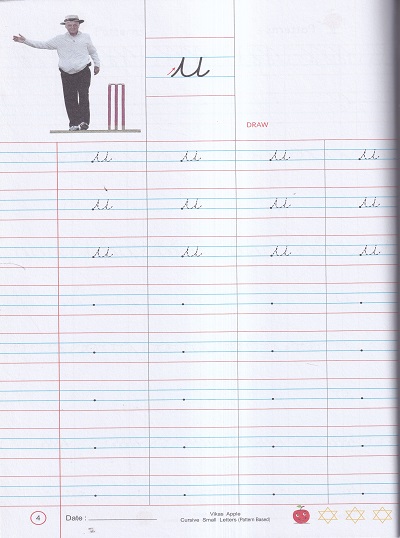 u
DRAW
u u u u
u u u u
u u u u
4 Date : Vikas Apple
Cursive Small Letters (Pattern Based)